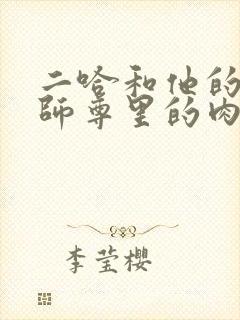 二哈和他的
師尊里的肉
李莹樱